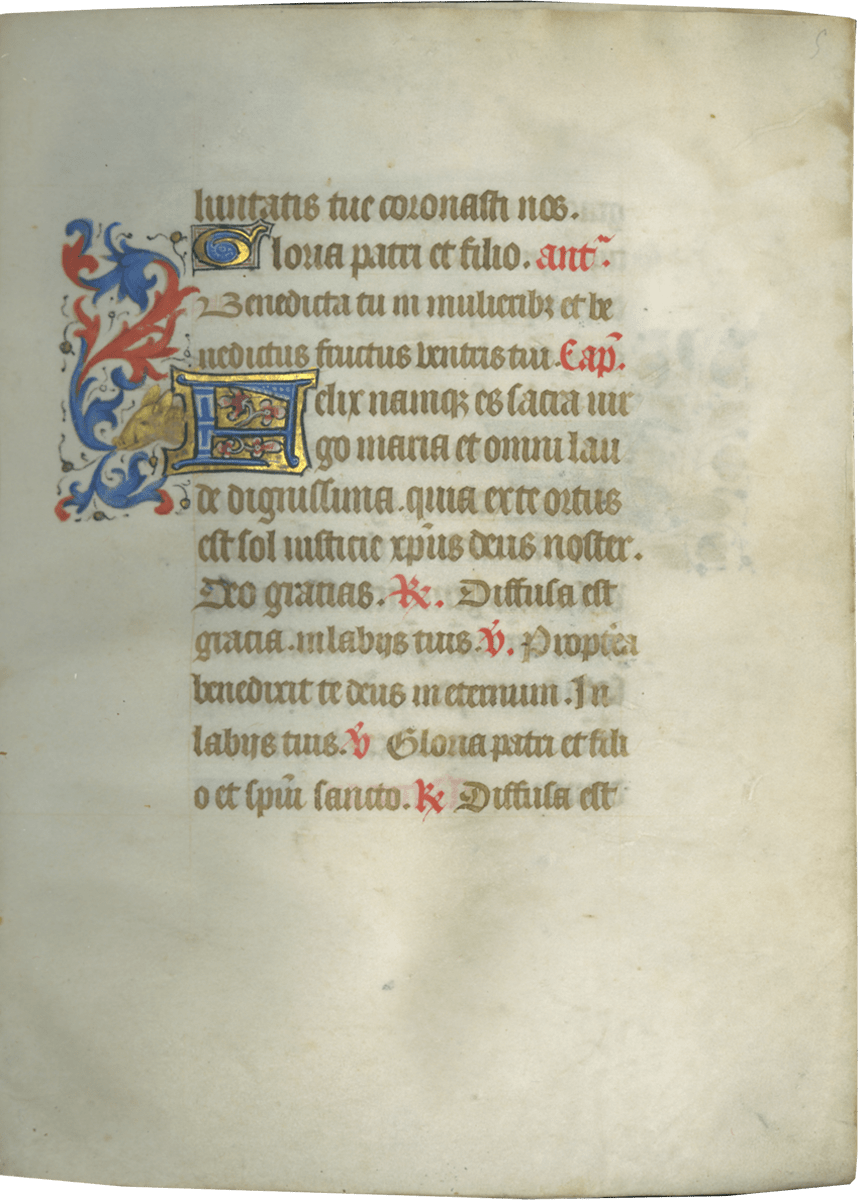 5
luntatis tue coronasti nos.
Gloria patri et filio. antᷓ.
Benedicta tu in mulieribꝫ et be
nedictus fructus ventris tui. Cap̄.
Felix namqꝫ es sacra uir
go maria et omni lau
de dignissima. quia ex te ortus
est sol iusticie xp̄us deus noster.
Deo gracias. R̸. Diffusa est
gracia. in labijs tuis. V̸. Propterea
benedixit te deus in eternum. In
labijs tuis. V̸ Gloria patri et fili
o et spūi sancto. R̸ Diffusa est